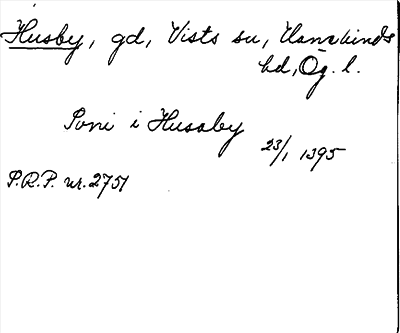 Husby, gd, Vists sn, Hanekinds
hd, Ög. l.
i Husaby
23/1 1395
P.R.P. nr. 2751